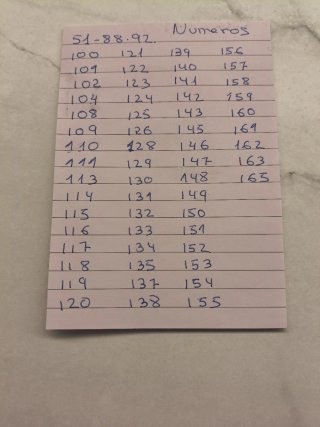 Numeros
51-88-92.
100 121 139 156
101 122 140 157
102 123 141 158
104 124 142 159
108 125 143 160
109 126 145 161
110 128 146 162
111 129 147 163
113 130 148 165
114 131 149
115 132 150
116 133 151
117 134 152
118 135 153
119 137 154
120 138 155